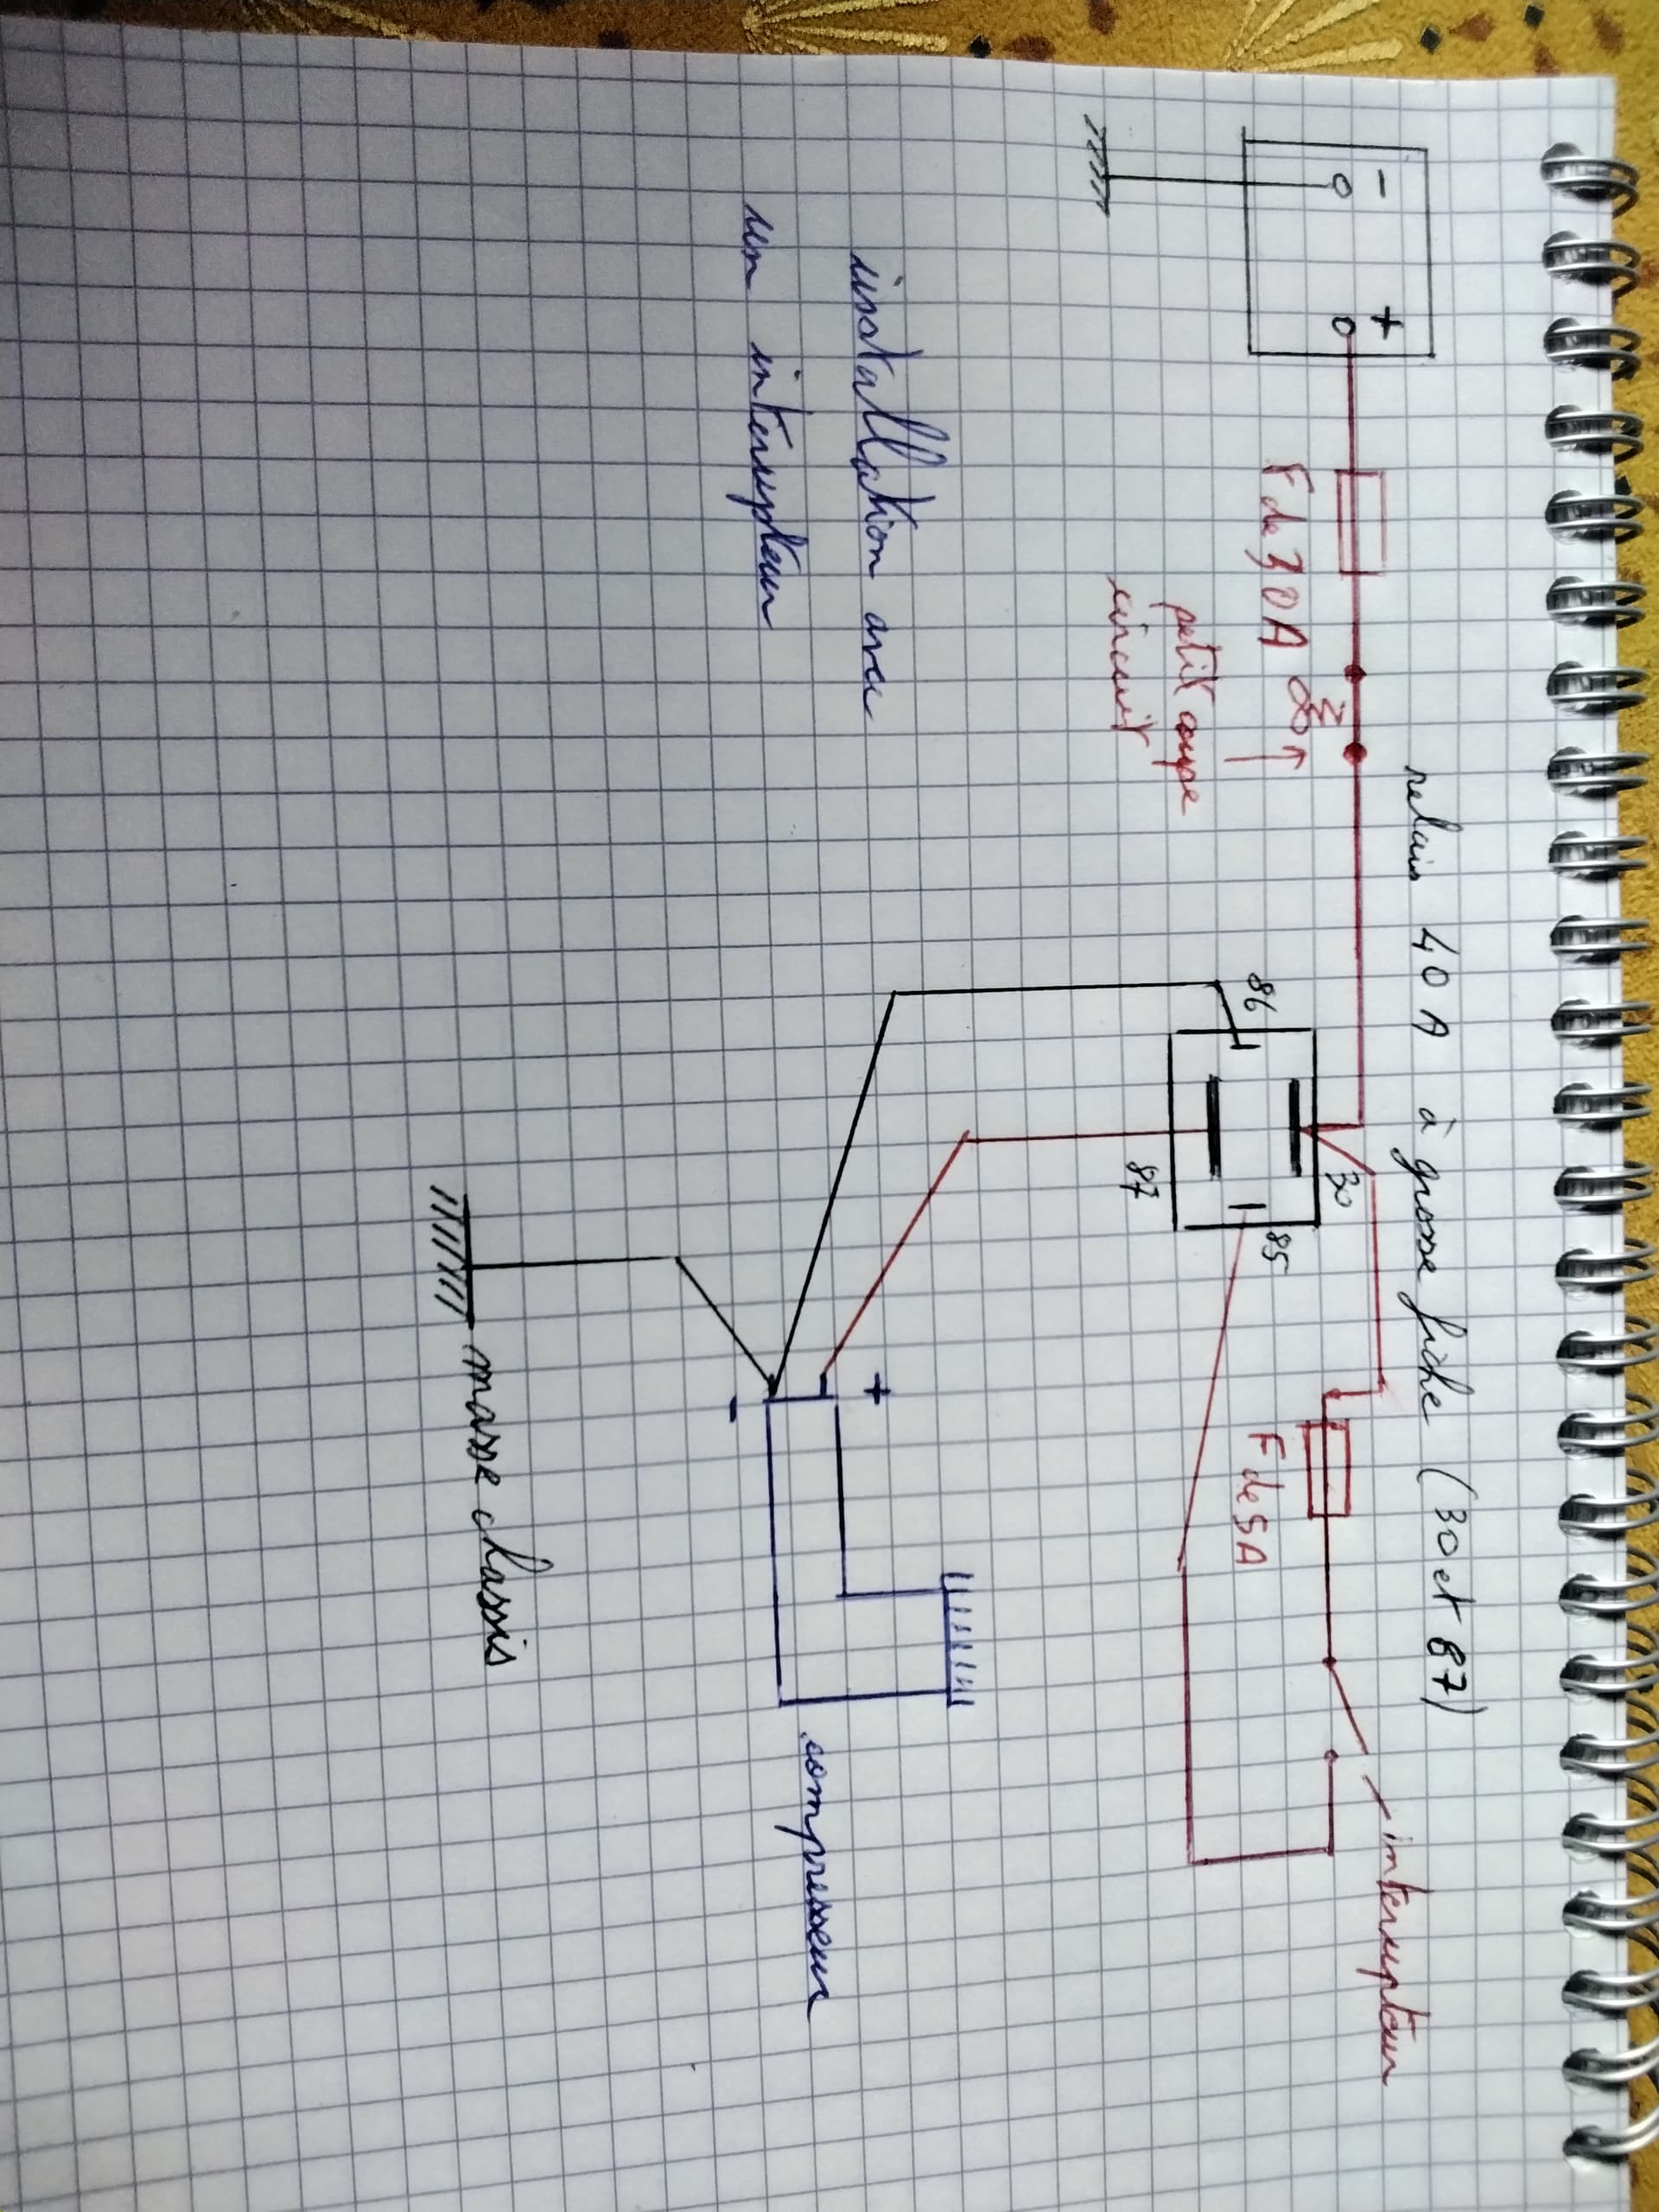 relais 40A à grosse fiche (30 et 87)
- +
F de 30A
petit coupe
circuit
30
86
85
87
F de 5A
interrupteur
installation avec
un interrupteur
+
-
compresseur
masse chassis